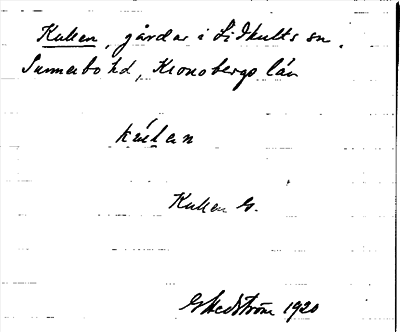 Kullen, gårdar i Lidhults sn.
Sunnerbo hd, Kronobergs län
Kullen G.
G Hedström 1920